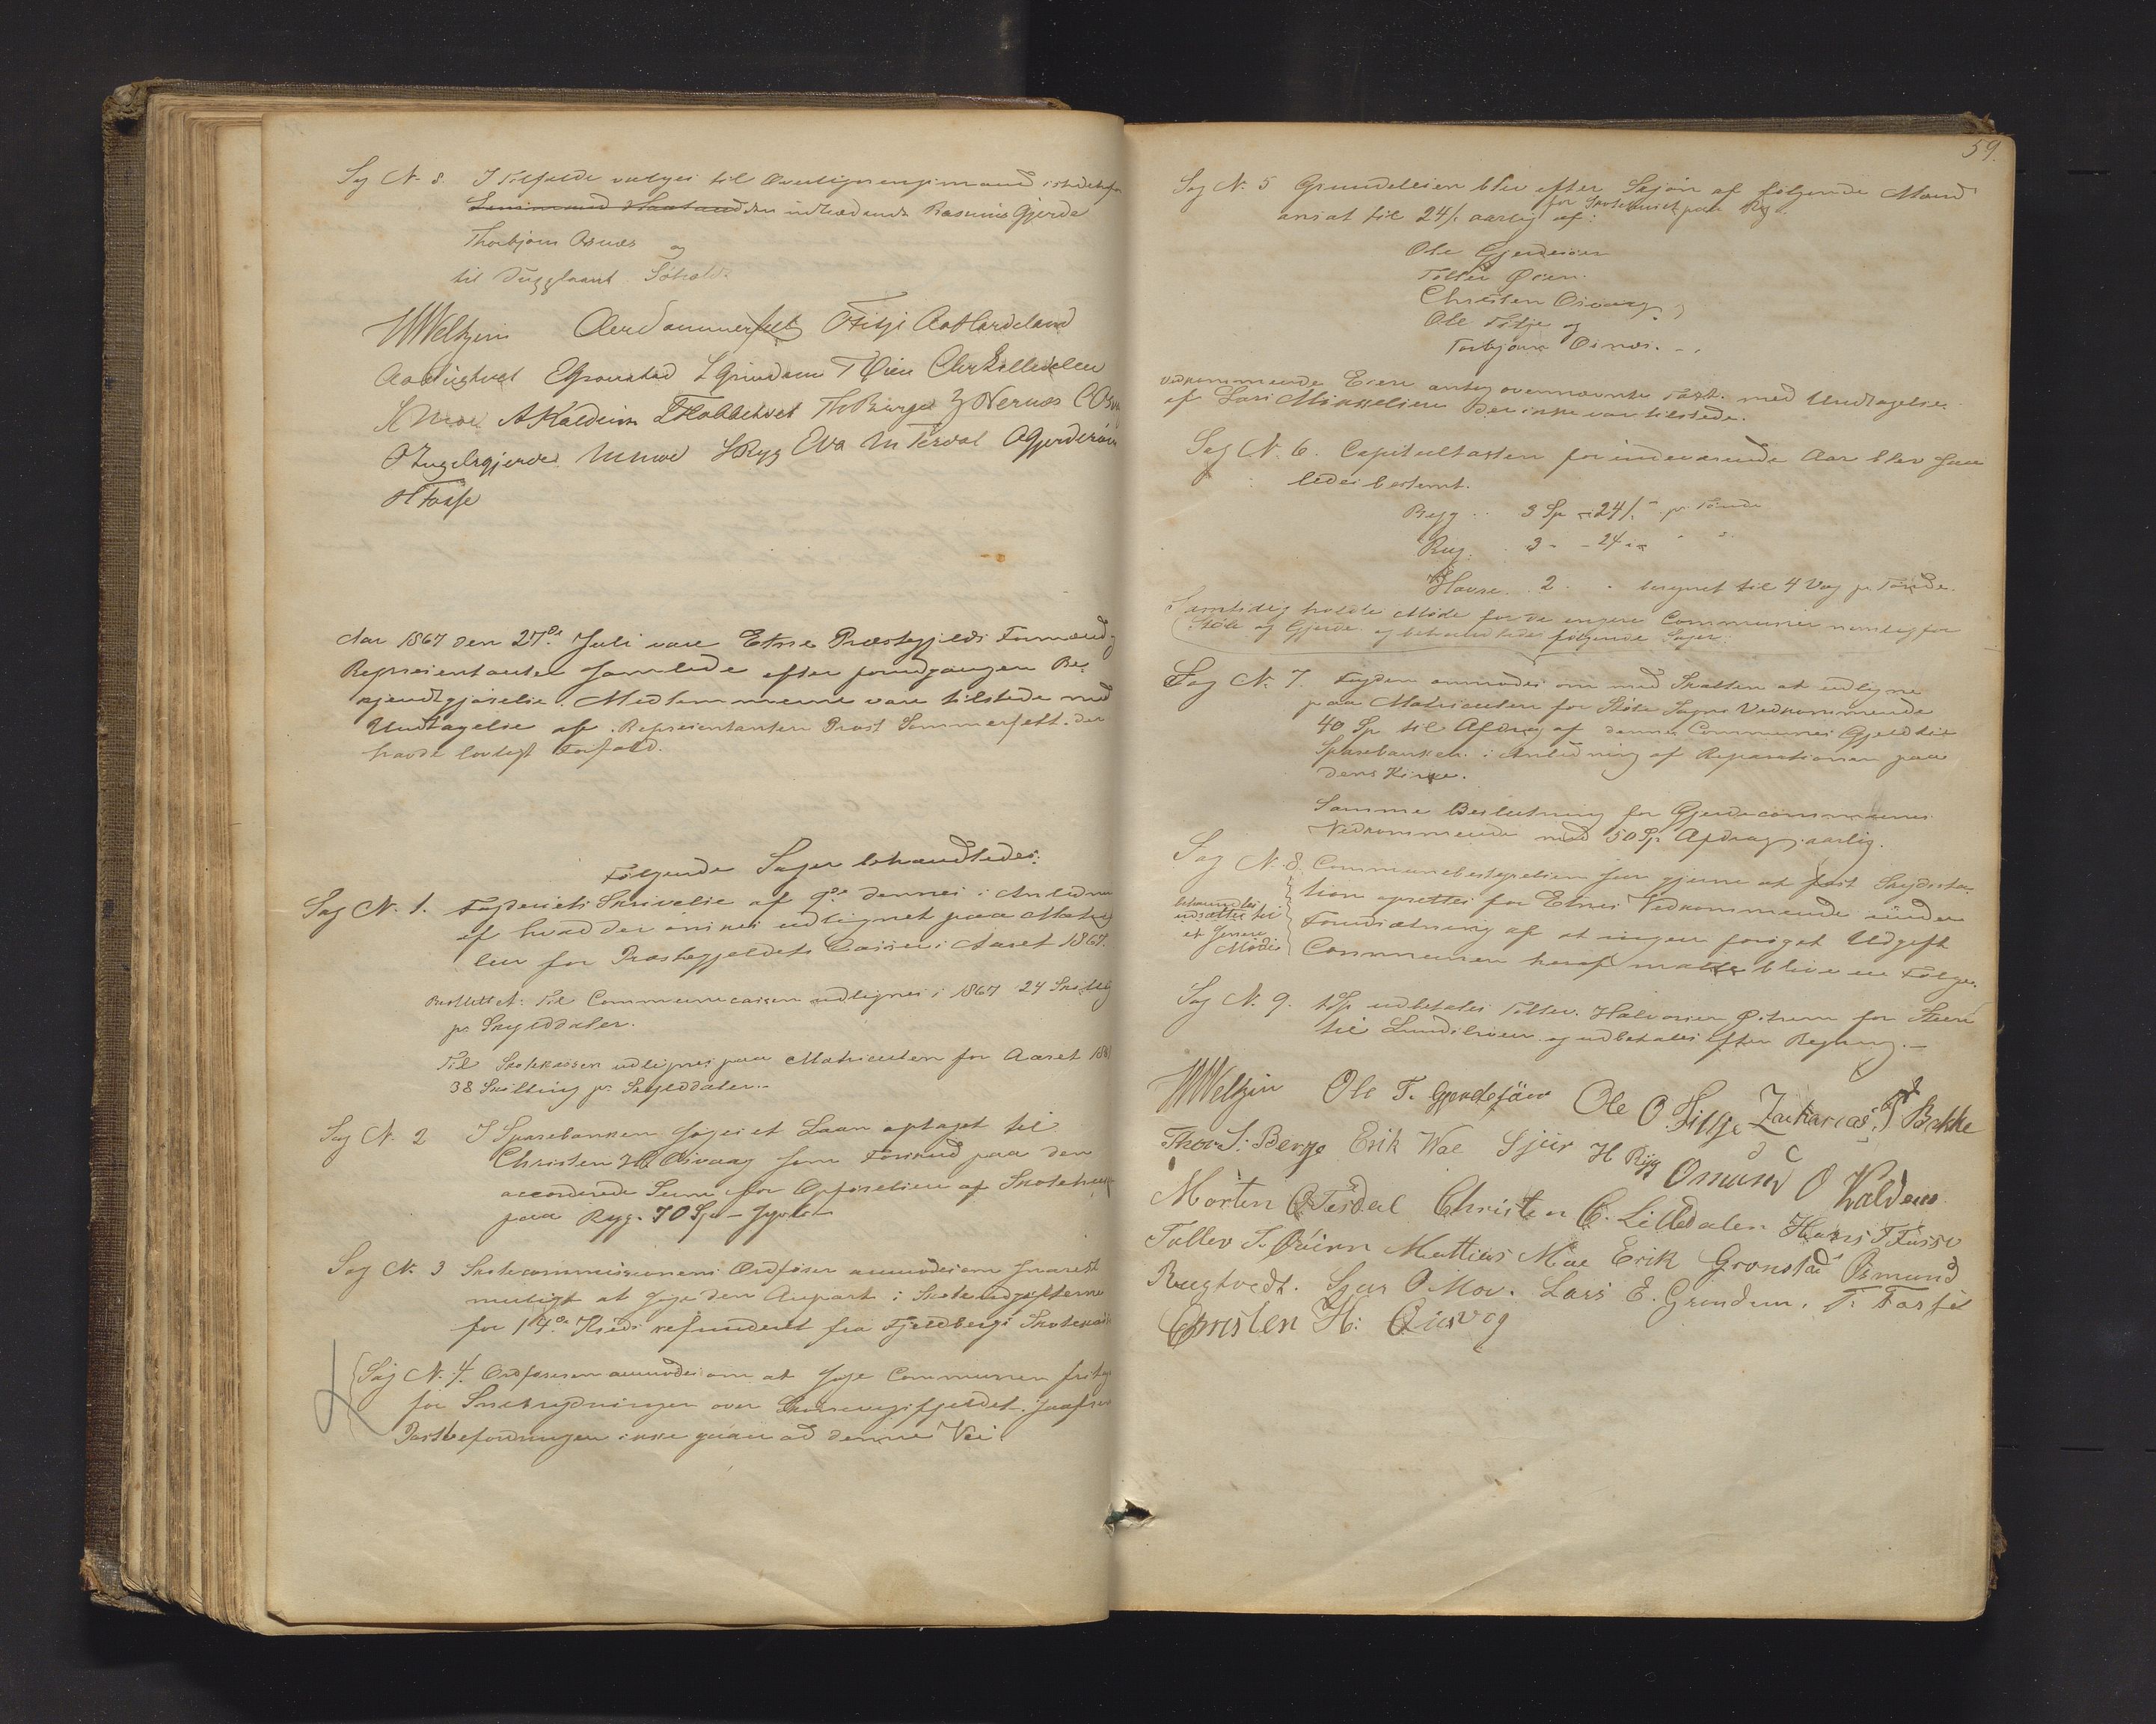 Sag N. 8. I Tilfælde vælges til Overligningsmand istedetfor
den indtrædende Rasmus Gjerde
Thorbjørn Osnæs og
til Suppleant
HWeltzin Sommerfelt OFitje
EGronstad LGrindem TØien ChrLilledalen
AKaldeim ThBerge
OIngelsgjerde MMoe SRyg EVa MTesdal OGjerdesøen
HFosse
Aar 1867 den 27de Juli vare Etne Præstegjelds Formænd og
Repræsentanter samlede efter forudgangen Be-
kjendtgjørelse. Medlemmerne vare tilstede med
Undtagelse af Repræsentanten Provst Sommerfelt der
havde lovligt Forfald.
Følgende Sager behandledes:
Sag N. 1. Fogderiets Skrivelse af 9de dennes i Anledning
af hvad der önskes udlignet paa Matriku
len for Præstegjeldets Casser i Aaret 1867.
Besluttet: Til Communecassen udlignes i 1867 24 Skilling
pr Skylddaler.
Til Skolekassen udlignes paa Matriculen for Aaret 186
38 Skilling pr Skylddaler.
Sag N. 2 I Sparebanken søges et Laan optaget til
Christen H Øsvaag som Forskud paa den
accorderede Sum for Opførelsen af Skolehuset
paa Ryg. 70 Spd
Sag N. 3 Skolecommissionens Ordfører anmodes om snarest
muligt at søge den Anpart i Skoleudgifterne
for 14de Kreds refunderet fra Fjeldbergs Skolekasse
Sag N. 4. Ordføreren anmodes om at søge Communen fritaget
for Snebrydningen over saafremt
Postbefordringen ikke gaaer ad denne Vei.
59.
Sag N. 5 Grundeleien blev efter Skjøn af følgende Mænd
for Skolehuset paa Ryg
ansat til 24 s. aarlig af:
Ole Gjerdesøen
Tollev Øien
Christen Osvaag
Ole Fitje og
Torbjørn Osnes.
Vedkommende Eiere antog ovennævnte Taxt med Undtagelse
af Lars Mikkelsen der ikke var tilstede.
Sag N. 6. Capiteltaxten for indeværende Aar blev saa
ledes bestemt.
Byg 3 Sp 24 s. pr Tønde
Rug. 3 - 24 - "
Havre. 2 - beregnet til 4 Vog pr Tønde.
Samtidig holdtes Møde for de engere Communer nemlig for
Støle og Gjerde og behandledes følgende Sager:
Sag N. 7. Fogden anmodes om med Skatten at udligne
paa Matriculen for Støle Sogns Vedkommende
40 Sp til Afdrag af denne Communes Gjeld til
Sparebanken i Anledning af Reparationen paa
dens Kirke.
Samme Beslutning for Gjerdecommunens
Vedkommende med 50 Sp Afdrag aarlig.
Sag N. 8. Communebestyrelsen saa gjerne at fast Skydssta-
tion oprettes for Etnes Vedkommende under
Forudsætning af at ingen forøget Udgift
Communen heraf maatte blive en Følge.
behandles
udsættes til
et senere
Møde
Sag N. 9. 1 Sp udbetales Tollev Halvorsen for Steen
til og udbetales efter Regning.
HWeltzin Ole T. Gjerdesöen Ole O. Fitje Zacharias T Bakke
Thor S. Berge Erik Wae Sjur H Ryg Osmund O Kaldem
Morten O Tesdal Christen C. Lilledalen Hans T Fosse
Tollev S. Øien Mattias Moe Erik Gronstad Osmund
Rugtvedt. Sjur O Moe. Lars E. Grindem.
Christen H: Osvog